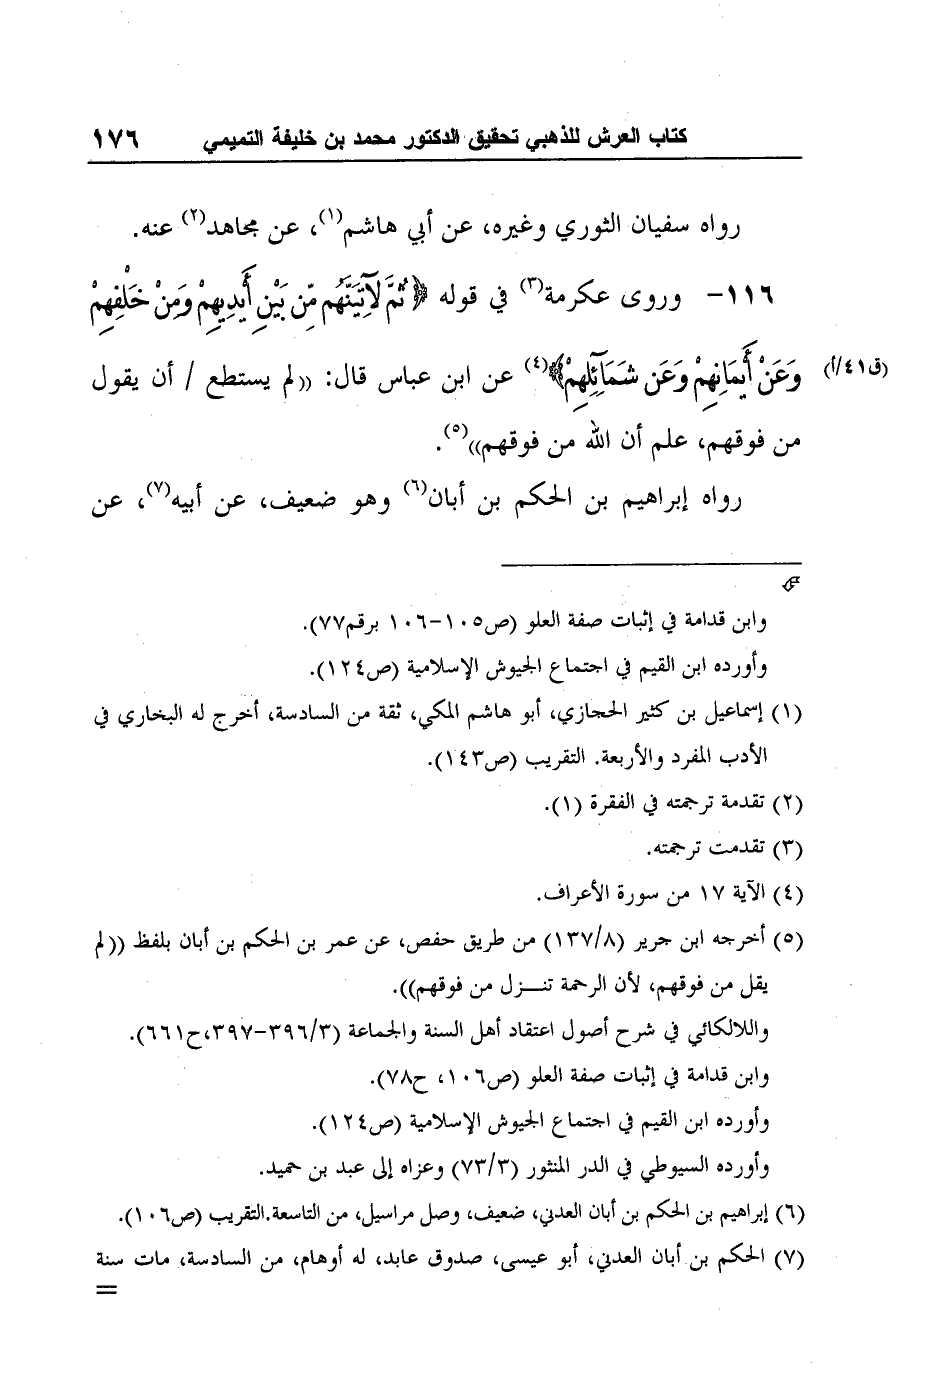 كتاب العرش للذهبي تحقيق الدكتور محمد بن خليفة التميمي ١٧٦
رواه سفيان الثوري وغيره، عن أبي هاشم(١)، عن مجاهد(٢) عنه.
١١٦- وروى عكرمة(٣) في قوله ﴿ثُمَّ لَآتِيَنَّهُم مِّن بَيْنِ أَيْدِيهِمْ وَمِنْ خَلْفِهِمْ
وَعَنْ أَيْمَانِهِمْ وَعَن شَمَآئِلِهِمْ﴾(٤) عن ابن عباس قال: ((لم يستطع / أن يقول
(ق٤١/أ)
من فوقهم، علم أن الله من فوقهم))(٥).
رواه إبراهيم بن الحكم بن أبان(٦) وهو ضعيف، عن أبيه(٧)، عن
وابن قدامة في إثبات صفة العلو (ص١٠٥-١٠٦ برقم٧٧).
وأورده ابن القيم في اجتماع الجيوش الإسلامية (ص١٢٤).
(١) إسماعيل بن كثير الحجازي، أبو هاشم المكي، ثقة من السادسة، أخرج له البخاري في
الأدب المفرد والأربعة. التقريب (ص١٤٣).
(٢) تقدمة ترجمته في الفقرة (١).
(٣) تقدمت ترجمته.
(٤) الآية ١٧ من سورة الأعراف.
(٥) أخرجه ابن جرير (١٣٧/٨) من طريق حفص، عن عمر بن الحكم بن أبان بلفظ ((لم
يقل من فوقهم، لأن الرحمة تنـــزل من فوقهم)).
واللالكائي في شرح أصول اعتقاد أهل السنة والجماعة (٣٩٦/٣-٣٩٧،ح٦٦١).
وابن قدامة في إثبات صفة العلو (ص١٠٦، ح٧٨).
وأورده ابن القيم في اجتماع الجيوش الإسلامية (ص١٢٤).
وأورده السيوطي في الدر المنثور (٧٣/٣) وعزاه إلى عبد بن حميد.
(٦) إبراهيم بن الحكم بن أبان العدني، ضعيف، وصل مراسيل، من التاسعة.التقريب (ص١٠٦).
(٧) الحكم بن أبان العدني، أبو عيسى، صدوق عابد، له أوهام، من السادسة، مات سنة
=